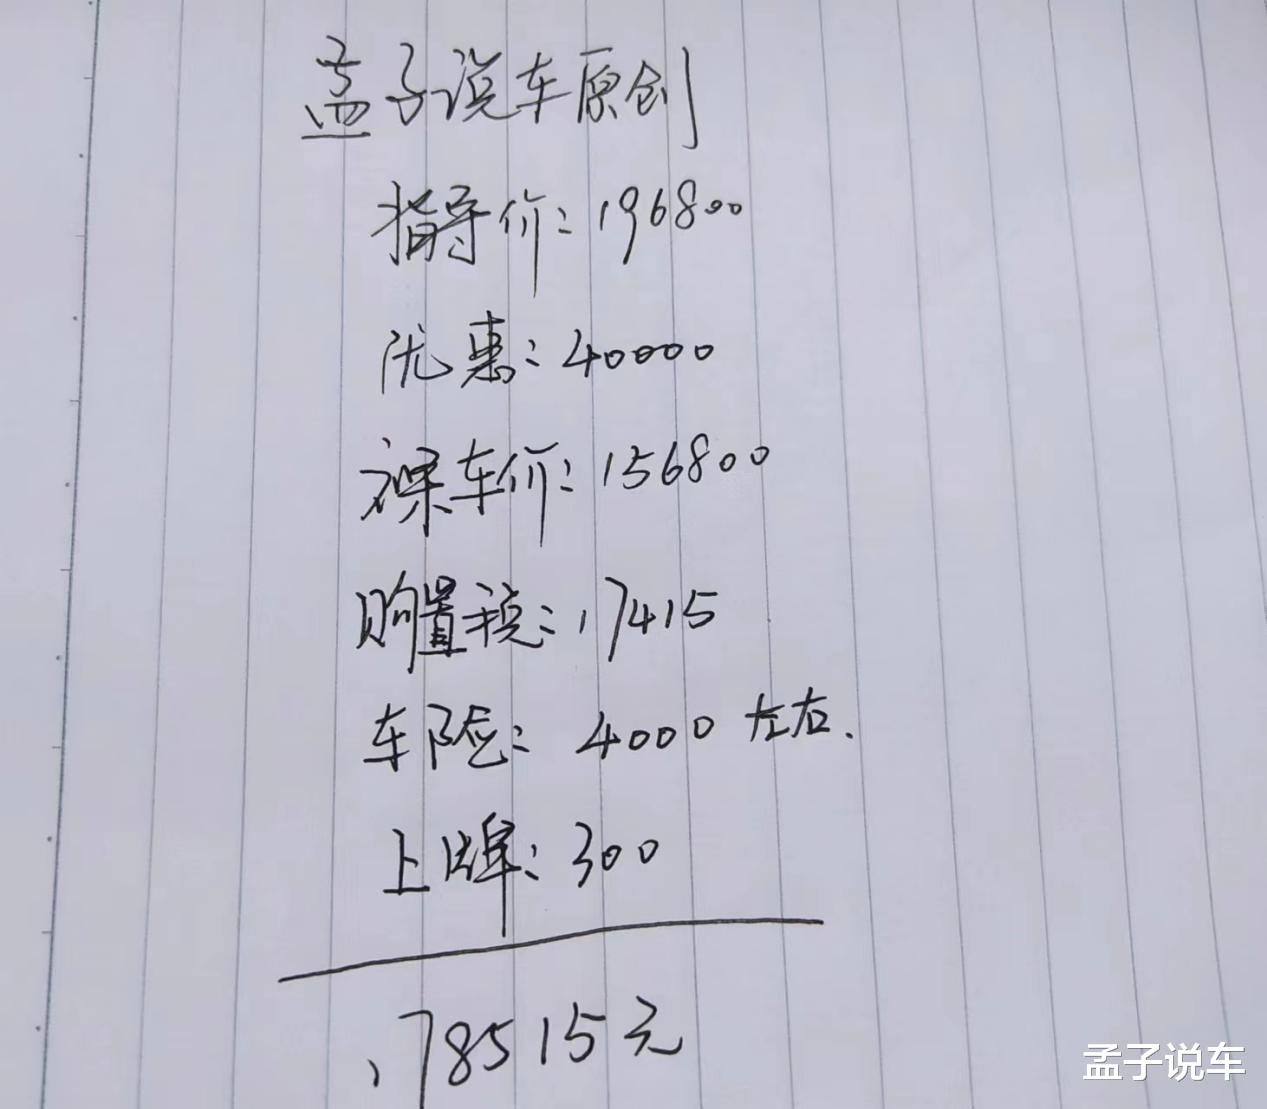 孟子说车原创
指导价：196800
优惠：40000
裸车价：156800
购置税：17415
车险：4000左右.
上牌：300
178515元
孟子说车